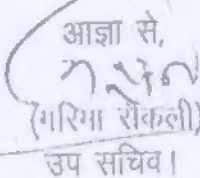 आज्ञा से,
(गरिमा रौंकली)
उप सचिव।